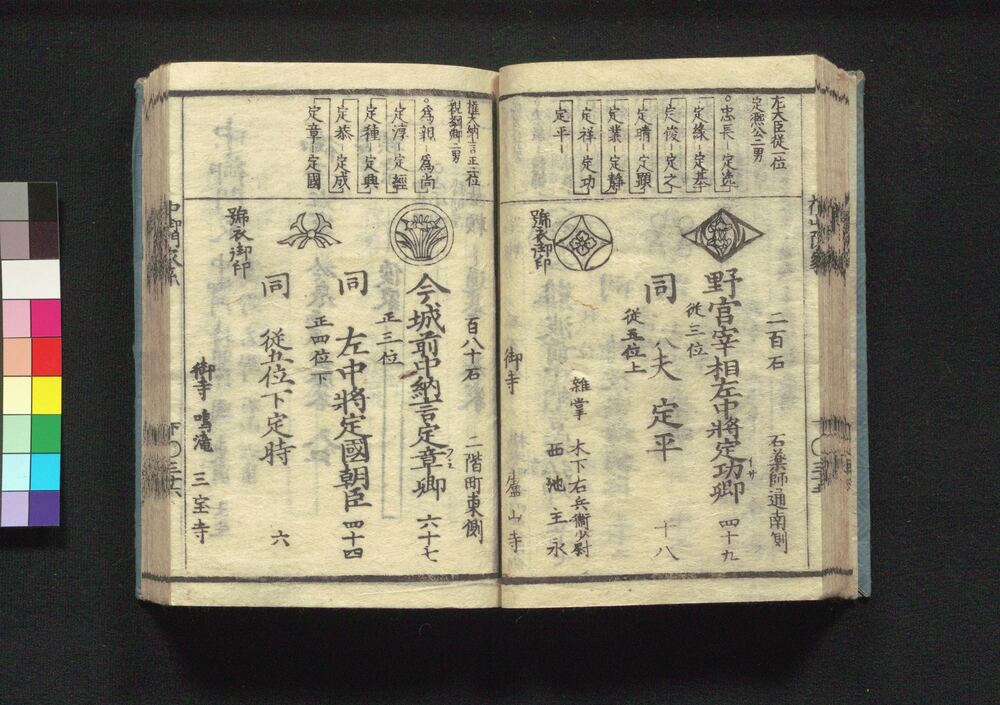 左大臣従一位
定凞公二男
忠長 定逸
定縁 定基
定俊 定之
定晴 定顕
定業 定静
定祥 定功
定平
二百石
石薬師通南側
野宮宰相左中将定功卿 四十九
従三位
同 大夫 定平 十八
従五位上
雑掌 木下右兵衛少尉
西池主永
號衣御印
御寺 盧山寺
権大納言正二位
親綱卿二男
為親 為尚
定淳 定經
定種 定興
定恭 定成
定章 定國
百八十石
二階町東側
今城前中納言定章卿 六十七
正三位
同 左中将定國朝臣 四十四
正四位下
同 従五位下定時 六
號衣御印
御寺 鳴滝 三宝寺